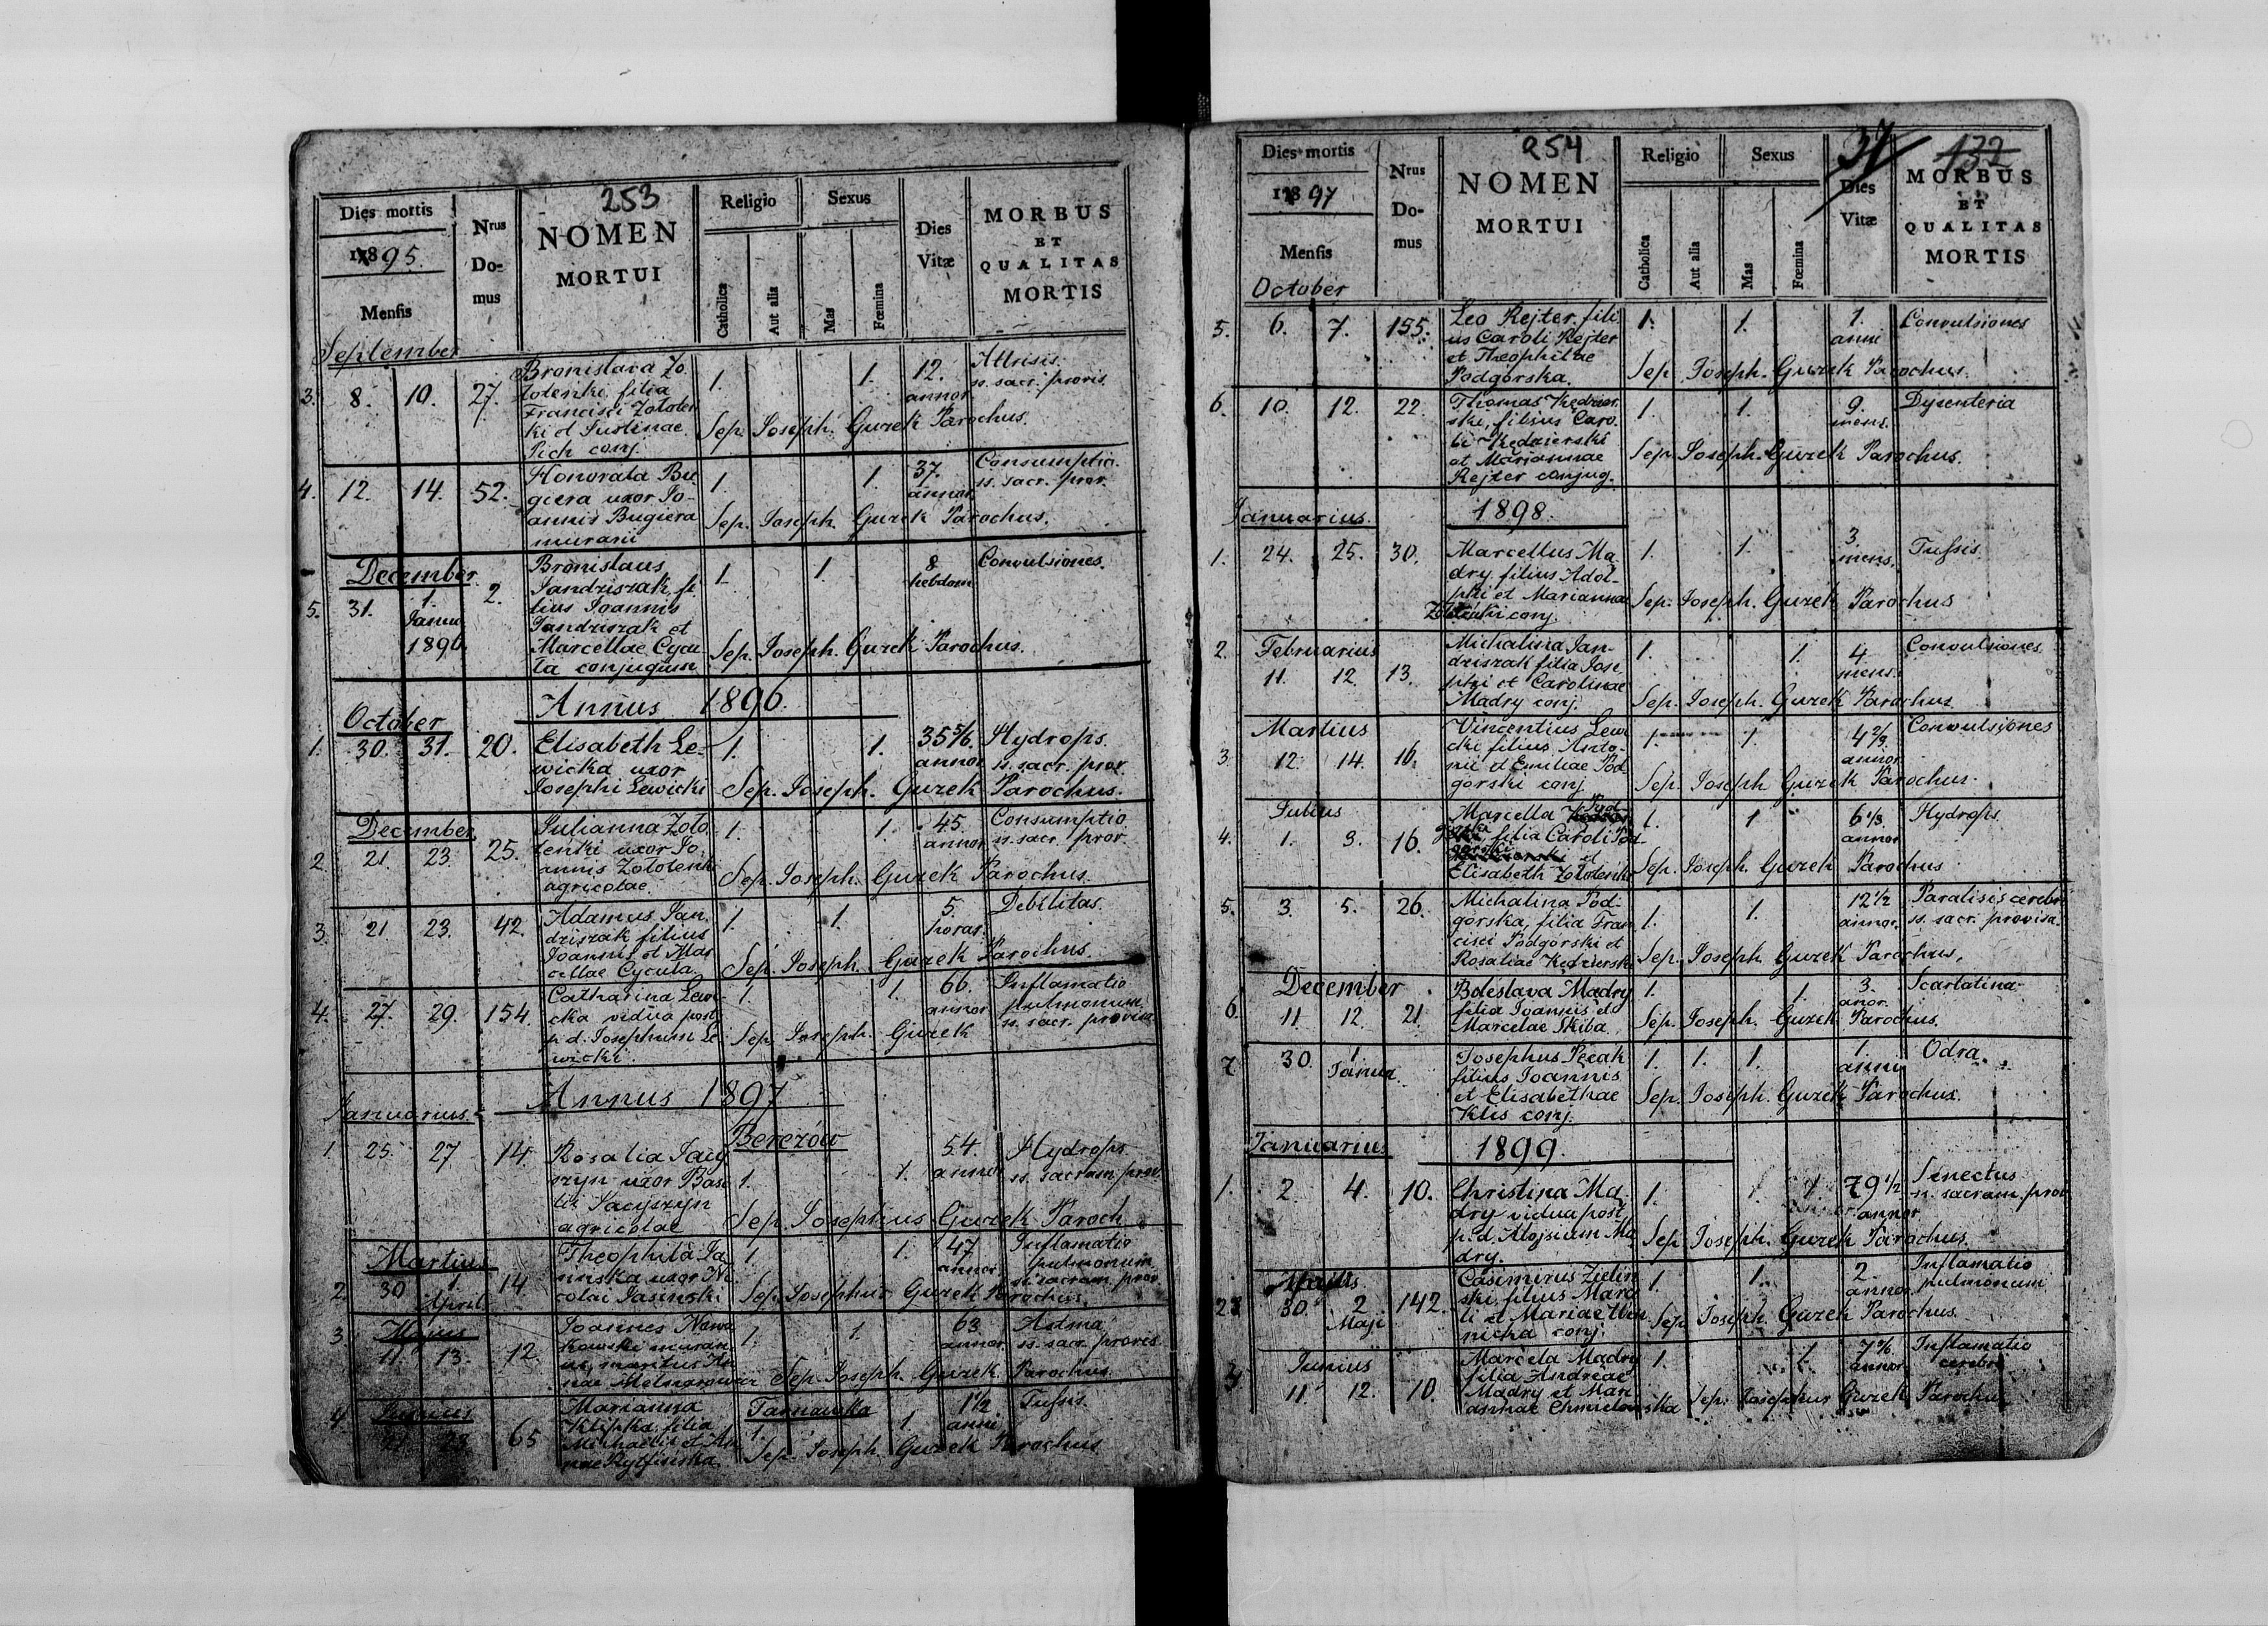 253
Dies mortis
1895.
Mensis
Nrus
Do-
mus
NOMEN
MORTUI
Religio
Catholica
Aut alia
Sexus
Mas
Fœmina
Dies
Vitæ
MORBUS
ET
QUALITAS
MORTIS
September
3. 8. 10. 27. Bronislava Zo 1. 1. 12. Attrisis.
lotenki filia annor ss. sacr. provis.
Francisci Zototen
ki et Justinae Sep. Joseph. Gurek Parochus.
Pich conj.
4. 12. 14. 52. Honorata Bu 1. 1. 37. Consumptio.
giera uxor Jo- annor ss. sacr. prov.
annis Bugiera Sep. Joseph. Gurek Parochus.
murarii
December
5. 31. 1. 2. Bronislaus 1. 1. 8 Convulsiones.
Janu Jandziszak, fi hebdom
1896 lius Joannis
Jandziszak et
Marcellae Cycu Sep. Joseph. Gurek Parochus.
ta conjugum
Annus 1896.
October
1. 30. 31. 20. Elisabeth Le- 1. 1. 35 5/6. Hydrops.
wicka uxor annor ss. sacr. prov.
Josephi Lewicki Sep. Joseph. Gurek Parochus.
December
2. 21. 23. 25. Julianna Zoto 1. 1. 45. Consumptio
tenki uxor Jo annor ss. sacr. prov.
annis Zototenk
agricolae. Sep. Joseph. Gurek Parochus.
3. 21. 23. 42. Adamus Jan 1. 1. 5. Debilitas.
dziszak filius horas.
Joannis et Mar
cellae Cycula. Sep. Joseph. Gurek Parochus.
4. 27. 29. 154. Catharina Lewi 1. 1. 66. Inflamatio
cka vidua post annor pulmonum
p. d. Josephum Le Sep. Joseph. Gurek ss. sacr. provisa
wicki.
Annus 1897
Januarius.
Berezów
1. 25. 27. 14. Rosalia Jacy 1. 1. 54. Hydrops
szyn uxor Basi annor ss. sacram. prov.
lii Jacyszyn
agricolae Sep. Josephus Gurek Paroch.
Martius
2. 30 1. 14. Theophila Ja 1. 1. 47 Inflamatio
April sinska uxor Ni annor pulmonum
colai Jasinski Sep. Josephus Gurek Parochus. ss. sacram. prov
Majus
3. 11. 13. 12. Joannes Nowa 1. 1. 63. Astma
kowski murari annor ss. sacr. provis
us, maritus An
nae Melnarowicz Sep. Joseph. Gurek. Parochus.
Junius
Tarnawka
4. 65 Marianna 1. 1. 1 1/2 Tussis.
Klipka filia anni
Michaelis et An
nae Sep. Joseph. Gurek Parochus
254
37
132
Dies mortis
1897
Mensis
Nrus
Do-
mus
NOMEN
MORTUI
Religio
Catholica
Aut alia
Sexus
Mas
Fœmina
Dies
Vitæ
MORBUS
ET
QUALITAS
MORTIS
October
5. 6. 7. 155. Leo Rejter, fili 1. 1. 1. Convulsiones
us Caroli Rejter anni
et Theophilae
Podgorska. Sep. Joseph. Gurek Parochus.
6. 10. 12. 22. Thomas Kędzier 1. 1. 9. Dysenteria
ski, filius Caro mens.
li Kędzierski
et Mariannae Sep. Joseph. Gurek Parochus.
Rejter conjug.
1898.
Januarius.
1. 24. 25. 30. Marcellus Ma 1. 1. 3. Tussis.
dry filius Adol- mens.
phi et Mariannae Sep. Joseph. Gurek Parochus
Zototenki conj.
Februarius
2. 11. 12. 13. Michalina Jan- 1. 1. 4 Convulsiones
dziszak filia Jose mens.
phi et Carolinae
Madry conj. Sep. Joseph. Gurek Parochus
Martius
3. 12. 14. 16. Vincentius Lewi 1. 1. 4 2/3. Convulsiones
cki filius Anto- annor
nii et Emiliae Pod
gorski conj. Sep. Joseph Gurek Parochus.
Julius
4. 1. 3. 16. Marcella Pod- 1. 1 6 1/3. Hydrops.
gorska, filia Caroli Pod- annor
gorski et
Elisabeth Zototenki Sep. Joseph. Gurek Parochus
5. 3. 5. 26. Michalina Pod- 1. 1. 12 1/2 Paralisis cerebri
gorska, filia Fran annor. ss. sacr. provisa.
cisci Podgorski et
Rosaliae Kędzierski Sep. Joseph Gurek Parochus.
December
6. 11 12. 21. Boleslava Madry 1. 1. 3. Scarlatina
filia Joannis et anor.
Marcelae Skiba Sep. Joseph. Gurek Parochus.
7. 30. 1 Josephus Pecak 1. 1. 1. 1. Odra.
Janua filius Joannis anni
et Elisabethae
Klis conj. Sep. Joseph. Gurek Parochus.
1899.
Januarius
1. 2. 4. 10. Christina Ma 1. 1. 79 1/2 Senectus
dry vidua post annor ss. sacram. prov
p. d. Alojsium Ma
dry. Sep. Joseph. Gurek Parochus.
2 30. 2 142. Casimirus Zielin 1. 1. 2 Inflamatio
Maji ski, filius Maro annor pulmonum
li et Mariae
nicka conj. Sep. Joseph. Gurek Parochus.
Junius
3 11. 12. 10 Marcela Madry 1. 1 annor Inflamatio
filia Andreae cerebri
Madry et Mari
annae Chmielowska Sep. Josephus Gurek Parochus